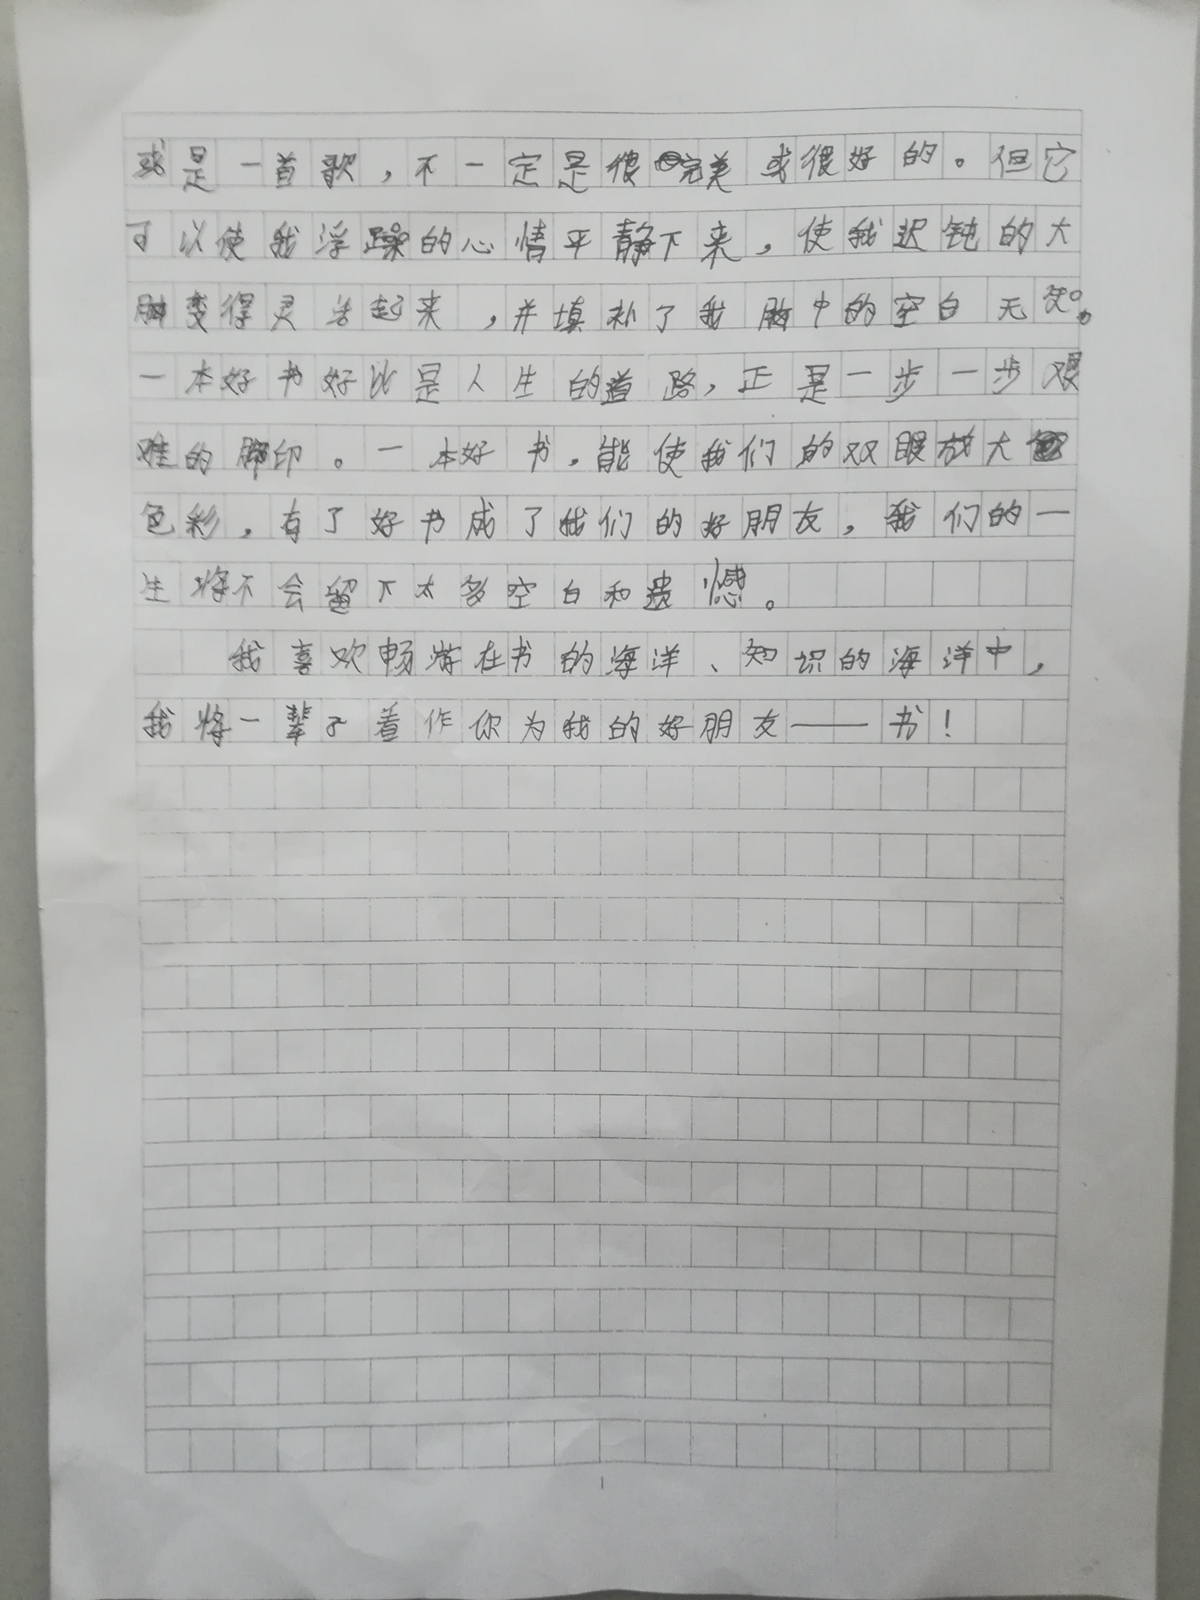 或是一首歌，不一定是很完美或很好的。但它
可以使我浮躁的心情平静下来，使我迟钝的大
脑变得灵活起来，并填补了我脑中的空白无知。
一本好书好比是人生的道路，正是一步一步艰
难的脚印。一本好书，能使我们的双眼放大
色彩，有了好书成了我们的好朋友，我们的一
生将不会留下太多空白和遗憾。
我喜欢畅游在书的海洋、知识的海洋中，
我将一辈子着作你为我的好朋友——书！
1